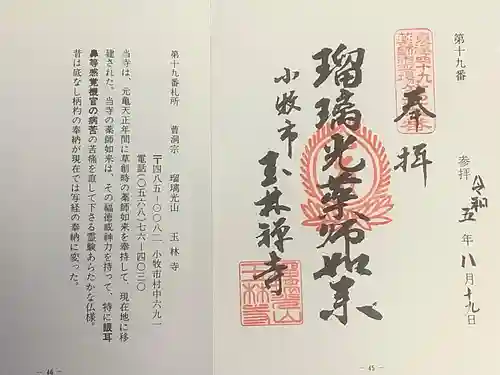 第十九番
参拝 令和五年八月十九日
奉拝
瑠璃光薬師如来
小牧市
玉林禅寺
- 45 -
第十九番札所 曹洞宗 瑠璃光山 玉林寺
〒四八五-〇〇八二 小牧市村中六九二
電話(〇五六八)七六-四〇三〇
当寺は、元亀天正年間に草創時の薬師如来を奉持して、現在地に移
建された。当寺の薬師如来は、その福徳威神力を持って、特に眼耳
鼻等感覚機官の病苦の苦痛を直して下さる霊験あらたかな仏様。
昔は底なし柄杓の奉納が現在では写経の奉納に変った。
- 46 -